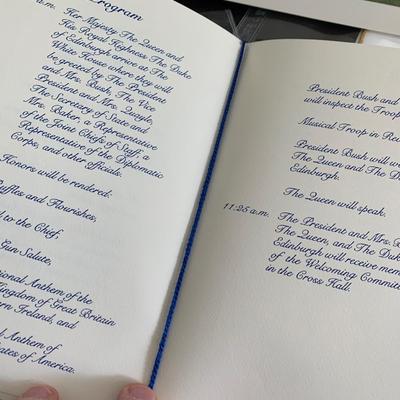 Program
a.m. Her Majesty The Queen and
His Royal Highness The Duke
of Edinburgh arrive at The
White House where they will
be greeted by The President
and Mrs. Bush, The Vice
President and Mrs. Quayle,
The Secretary of State and
Mrs. Baker, a Representative
of the Joint Chiefs of Staff, a
Representative of the Diplomatic
Corps, and other officials.
Honors will be rendered:
Ruffles and Flourishes,
to the Chief,
Gun Salute,
Anthem of the
Kingdom of Great Britain
Ireland, and
Anthem of
of America.
President Bush and
will inspect the
Musical Troop in
President Bush will
The Queen and The
Edinburgh.
The Queen will speak.
11:25 a.m. The President and Mrs.
The Queen, and The
Edinburgh will receive
of the Welcoming
in the Cross Hall.